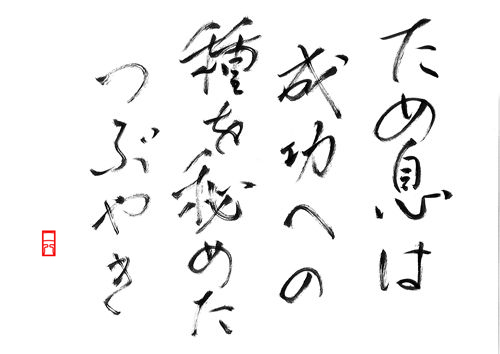 ため息は
成功への
種を秘めた
つぶやき